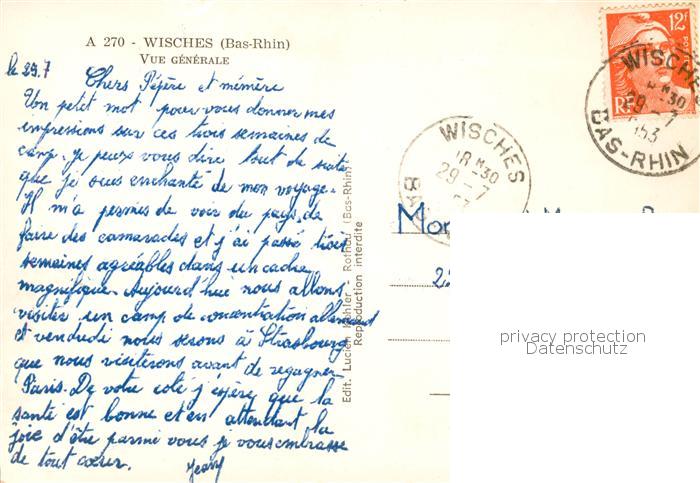 A 270 - WISCHES (Bas-Rhin)
VUE GÉNÉRALE
le 29.7
Chers Pépère et mémère
Un petit mot pour vous donner mes
impressions sur ces trois semaines de
camp. je peux vous dire tout de suite
que je suis enchanté de mon voyage.
Il m'a permis de voir du pays, de
faire des camarades et j'ai passé trois
semaines agréables dans un cadre
magnifique. Aujourd'hui nous allons
visiter un camp de concentration allemand
et vendredi nous serons à Strasbourg
que nous visiterons avant de regagner
Paris. De votre coté j'espère que la
santé est bonne et en attendant la
joie d'être parmi vous je vous embrasse
de tout coeur.
Edit. Lucien Kohler - Rothau (Bas-Rhin)
Reproduction interdite
12F
RF
WISCHES
18H30
29-7
1953
BAS-RHIN
WISCHES
18H30
29-7
BAS
22
privacy protection
Datenschutz